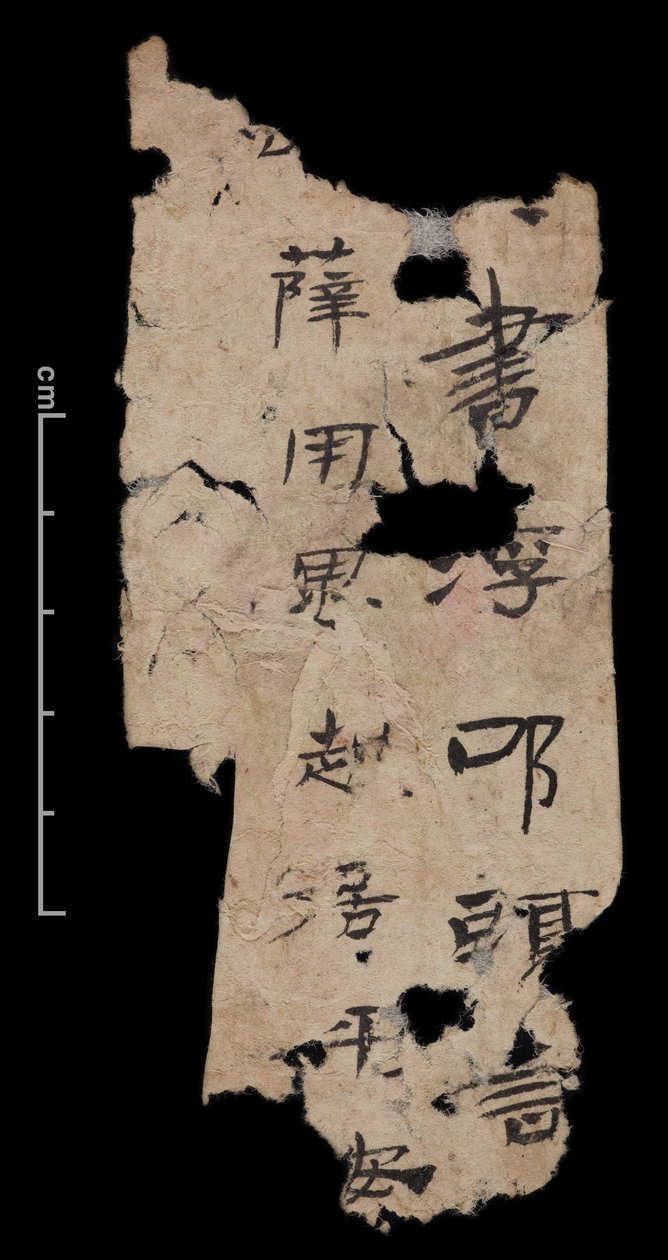 書浮叩頭言
薛用思起居平安
cm